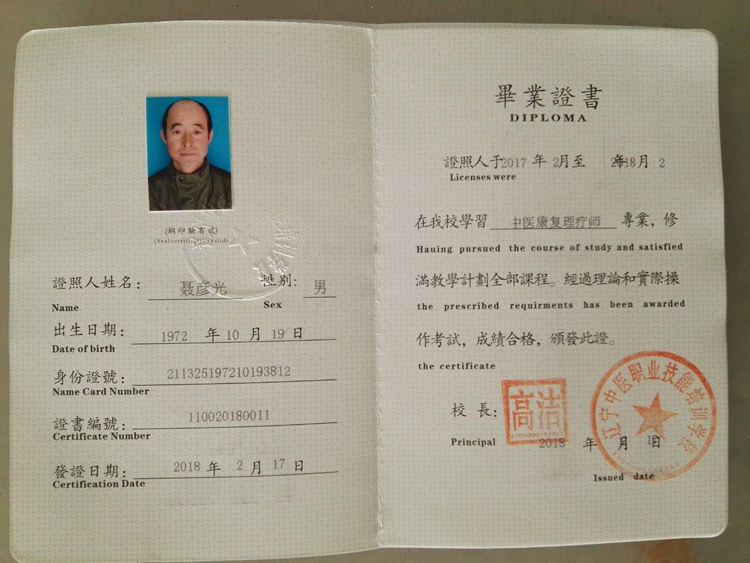 (鋼印驗有效)
(Seal certificate valid)
證照人姓名： 聶彦光 性别: 男
Name Sex
出生日期： 1972 年 10 月 19 日
Date of birth
身份證號： 211325197210193812
Name Card Number
證書編號： 110020180011
Certificate Number
發證日期： 2018 年 2 月 17 日
Certification Date
畢業證書
DIPLOMA
證照人于2017 年 2月至 2018年 月 2
Licenses were
在我校學習 中医康复理疗师 專業，修
Hauing pursued the course of study and satisfied
滿教學計劃全部課程。經過理論和實際操
the prescribed requirments has been awarded
作考試，成績合格，頒發此證。
the certificate
校長： 高洁
Principal 2018 年 月 日
Issued date
辽宁中医职业技能培训学校